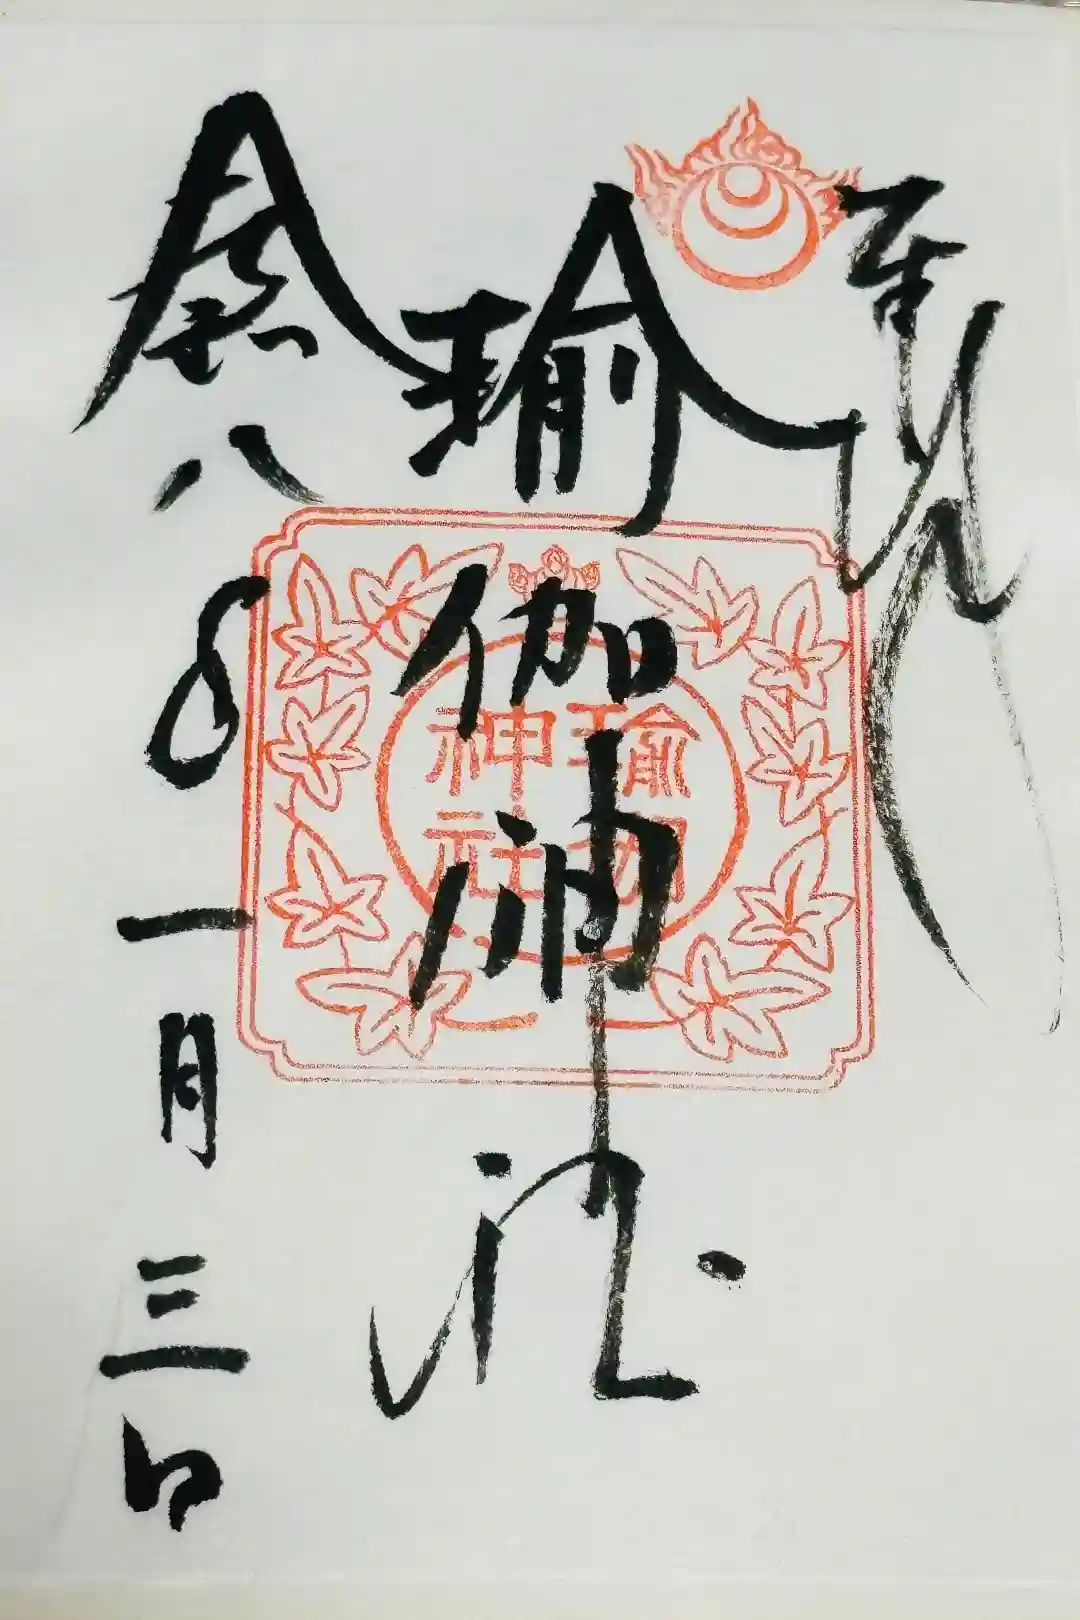 奉拝
瑜伽神社
令和八年一月三日
瑜伽
神社